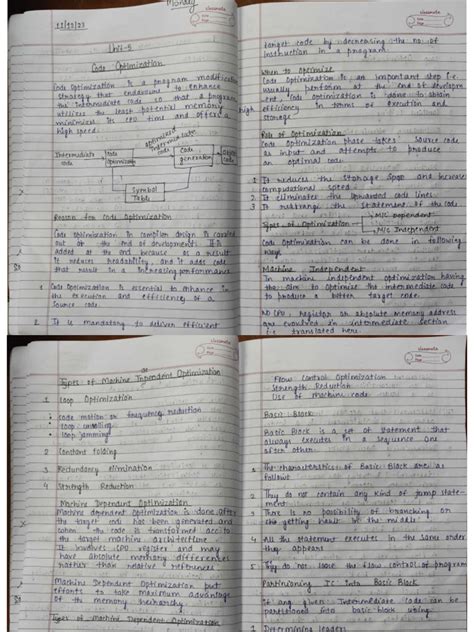 Monday
classmate
Date
Page
12/10/23
Unit-5
Code Optimization
Code Optimization is a program modification
strategy that endeavours to enhance
the intermediate code so that a program
utilizes the least potential memory
minimizes its CPU time and offers a
high speed.
Intermediate code
Code optimizer
optimized Intermediate code
Code generation
Symbol Table
Reason for Code Optimization
Code optimization in compiler design is carried
out at the end of development. It is
added at the end because as a result
it reduces readability, and it adds code
that result in a increasing performance
1 Code Optimization is essential to enhance in
the execution and efficiency of a
source code.
2 It is mandatory to deliver efficient
classmate
Date
Page
target code by decreasing the no. of
instruction in a program.
When to optimize
Code Optimization is an important step i.e.
usually perform at the end of development
Code Optimization is done to obtain
high efficiency in terms of execution and
storage.
Role of Optimization
Code Optimization phase takes source code
as input and attempts to produce
an optimal code.
1 It reduces the storage space and increase
computational speed.
2 It eliminates the code lines
3 It rearrange the statement of the code
Types of Optimization
M/C Dependent
M/C Independent
Code Optimization can be done in following
ways
Machine Independent
In machine independent optimization having
the aim to optimize the intermediate code
to produce a better target code.
NO CPU, register or absolute memory address
are evolved in intermediate section
i.e. translated here.
Types of Machine Independent Optimization
1 Loop Optimization
code motion or frequency reduction
loop unrolling
loop jamming
2 Constant folding
3 Redundancy elimination
4 Strength Reduction
Machine Dependent Optimization
Machine dependent Optimization is done after
the target code has been generated and
when the code is transformed acc to
the target machine architecture
It involves CPU register and may
have absolute memory differences
rather than relative references
Machine Dependent Optimization put
efforts to take maximum advantage
of the memory
Types of Machine Dependent Optimization
classmate
Date
Page
Flow Control Optimization
Strength Reduction
Use of machine code
Basic Block
Basic Block is a set of statement that
always executes in a sequence one
after other.
The characteristics of Basic Block are as
follow
2 They do not contain any kind of jump state-
ment.
3 There is no possibility of branching or
getting halt in the middle
4 All the statement executes in the same order
they appears
5 They do not leave the flow control of program
Partitioning IC into Basic Block
if any given Intermediate Code can be
partitioned into basic block using
1 Determining leaders